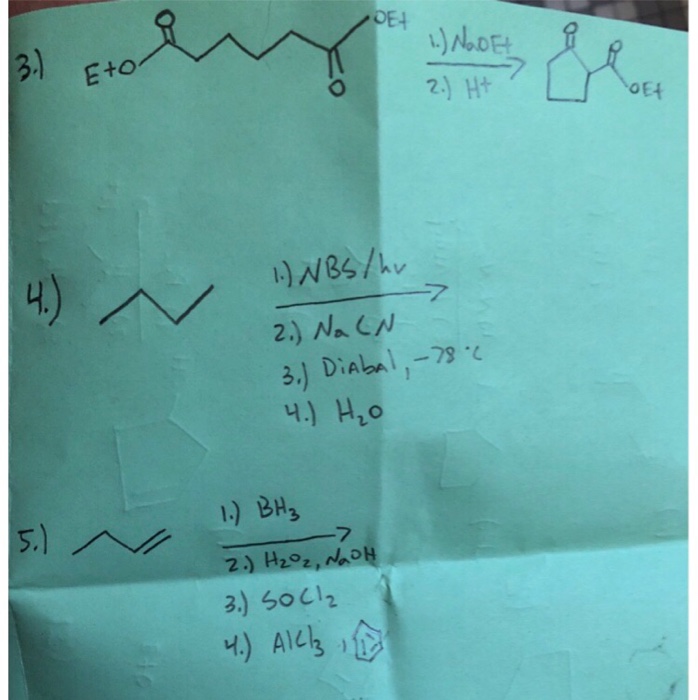 3.) EtO O O OEt 1.) NaOEt O O OEt
2.) H+
4.) 1.) NBS/hv
2.) NaCN
3.) Diabal, -78°C
4.) H₂O
5.) 1.) BH₃
2.) H₂O₂, NaOH
3.) SOCl₂
4.) AlCl₃,